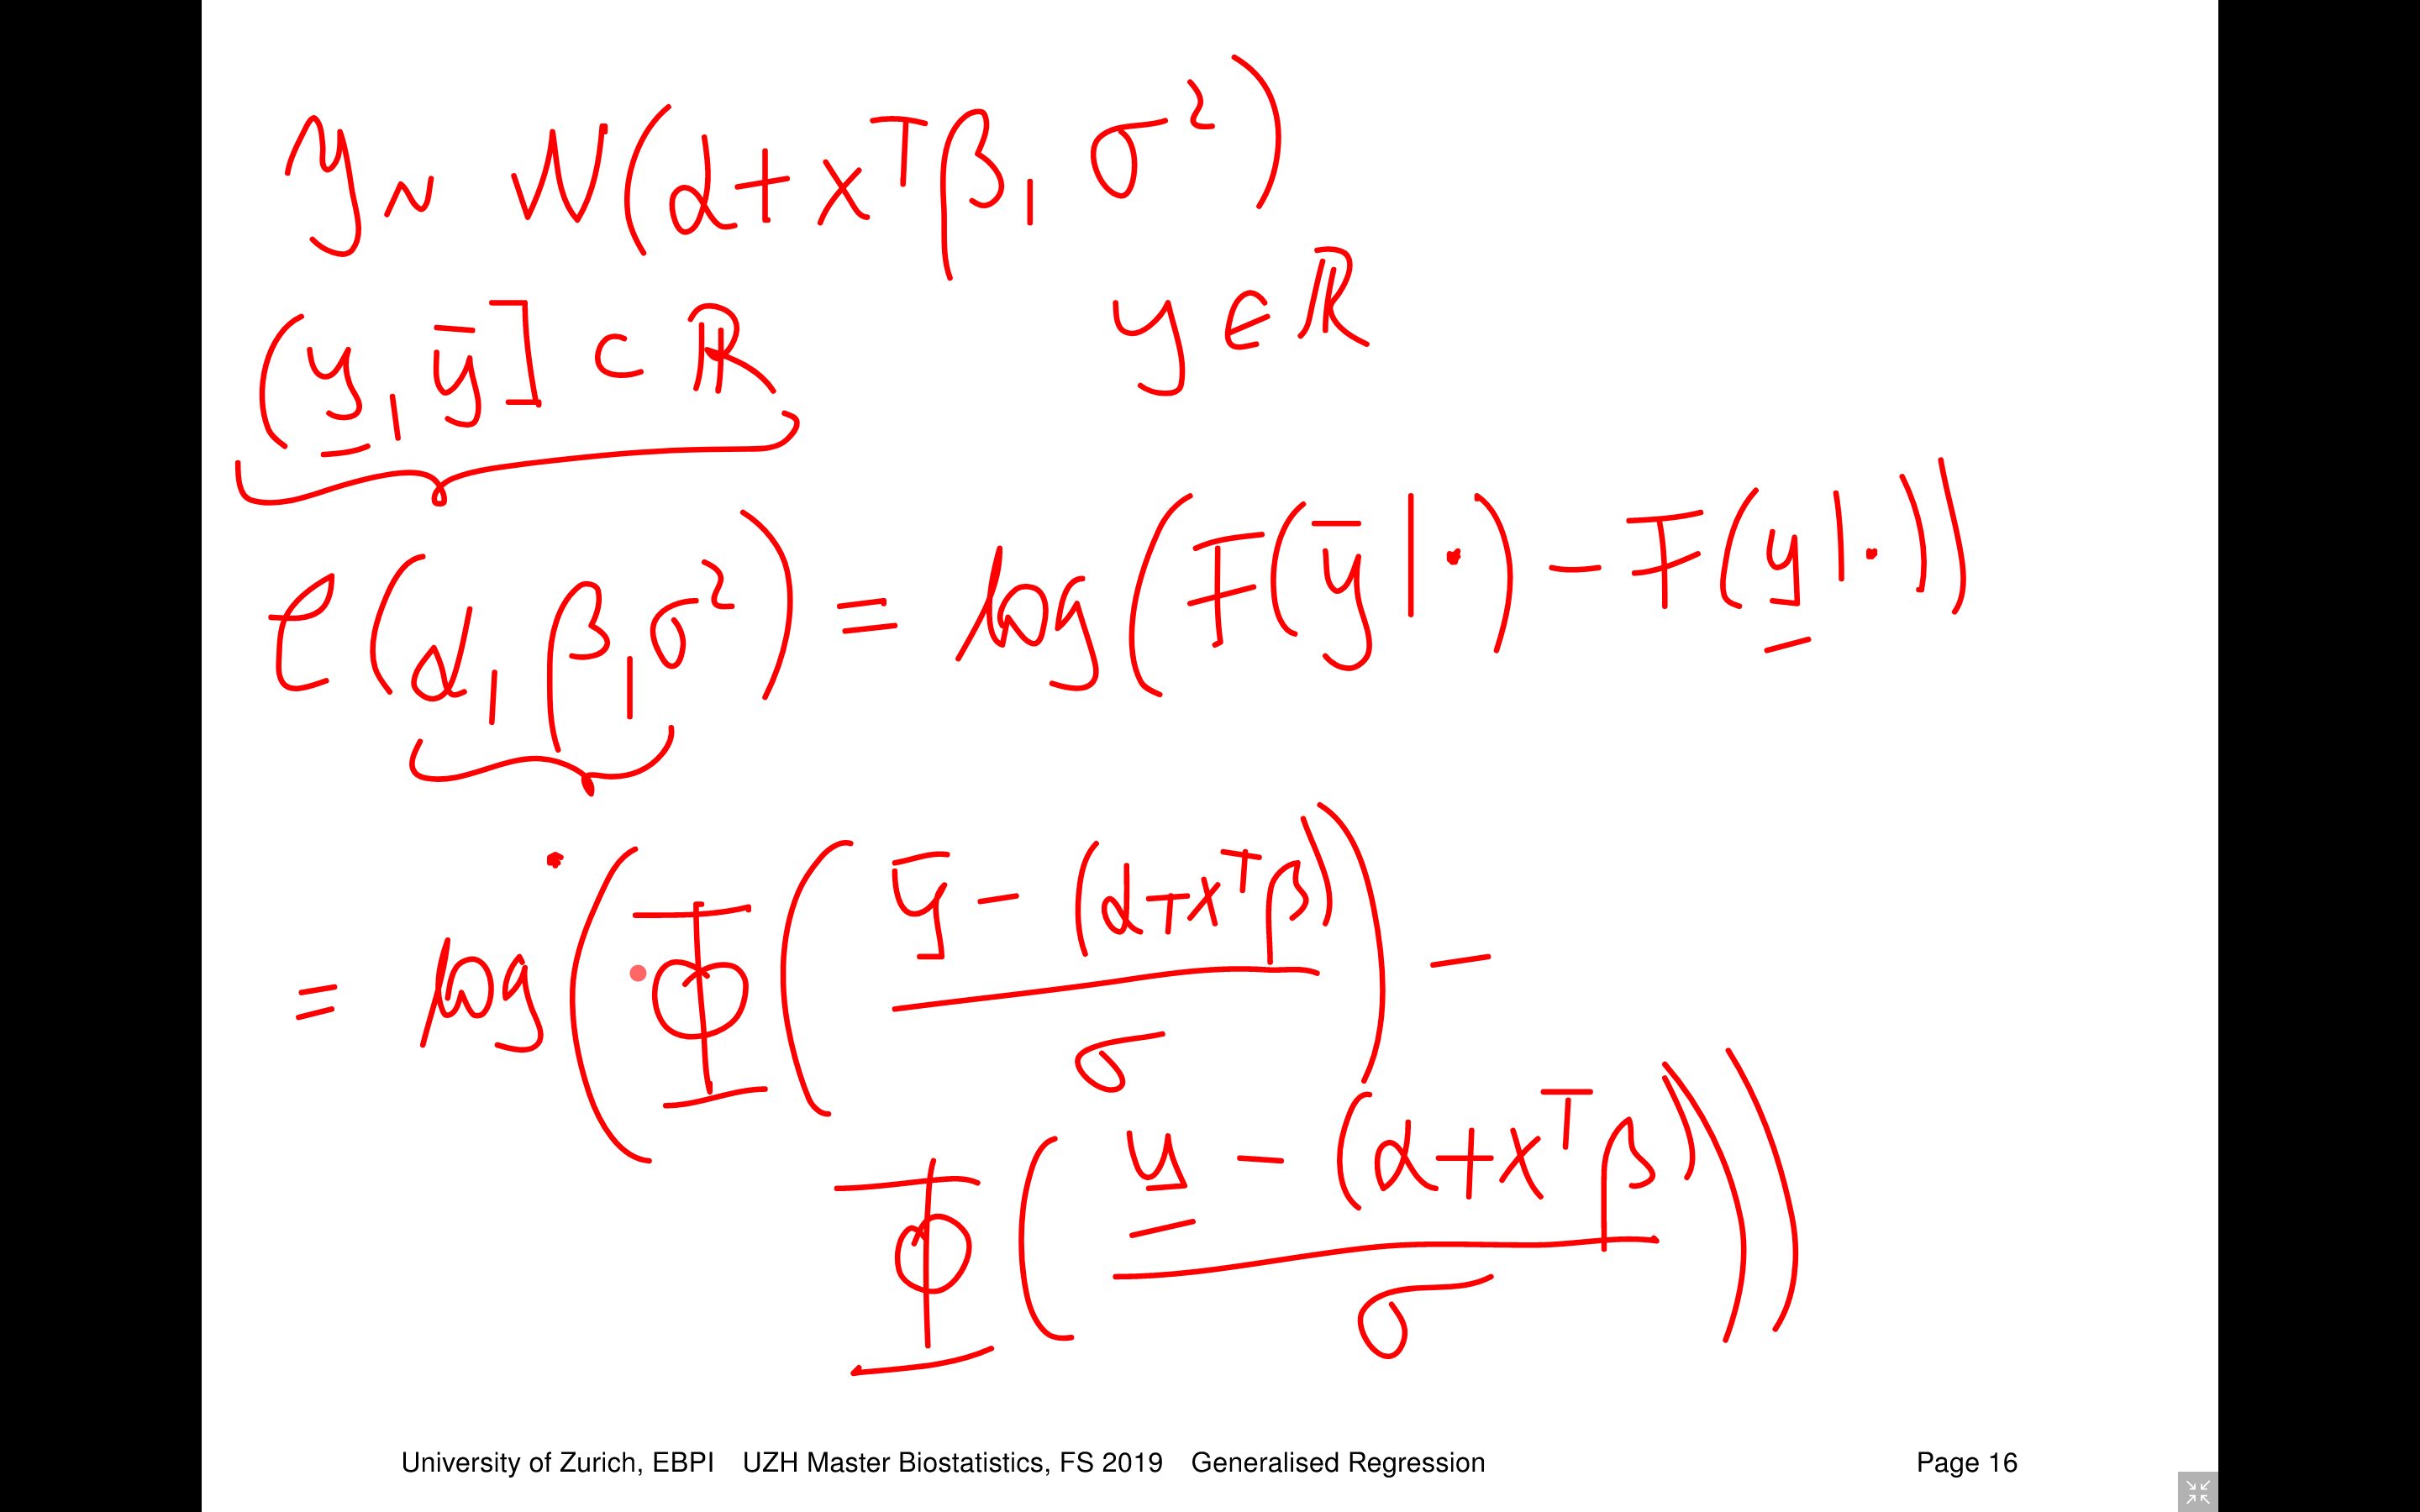 Y ~ N(α + xᵀβ, σ²)
(y̲, ȳ] ⊂ ℝ   y ∈ ℝ
ℓ(α, β, σ²) = log(F(ȳ|·) − F(y̲|·))
= log(Φ((ȳ − (α + xᵀβ))/σ) −
Φ((y̲ − (α + xᵀβ))/σ))
University of Zurich, EBPI UZH Master Biostatistics, FS 2019 Generalised Regression Page 16